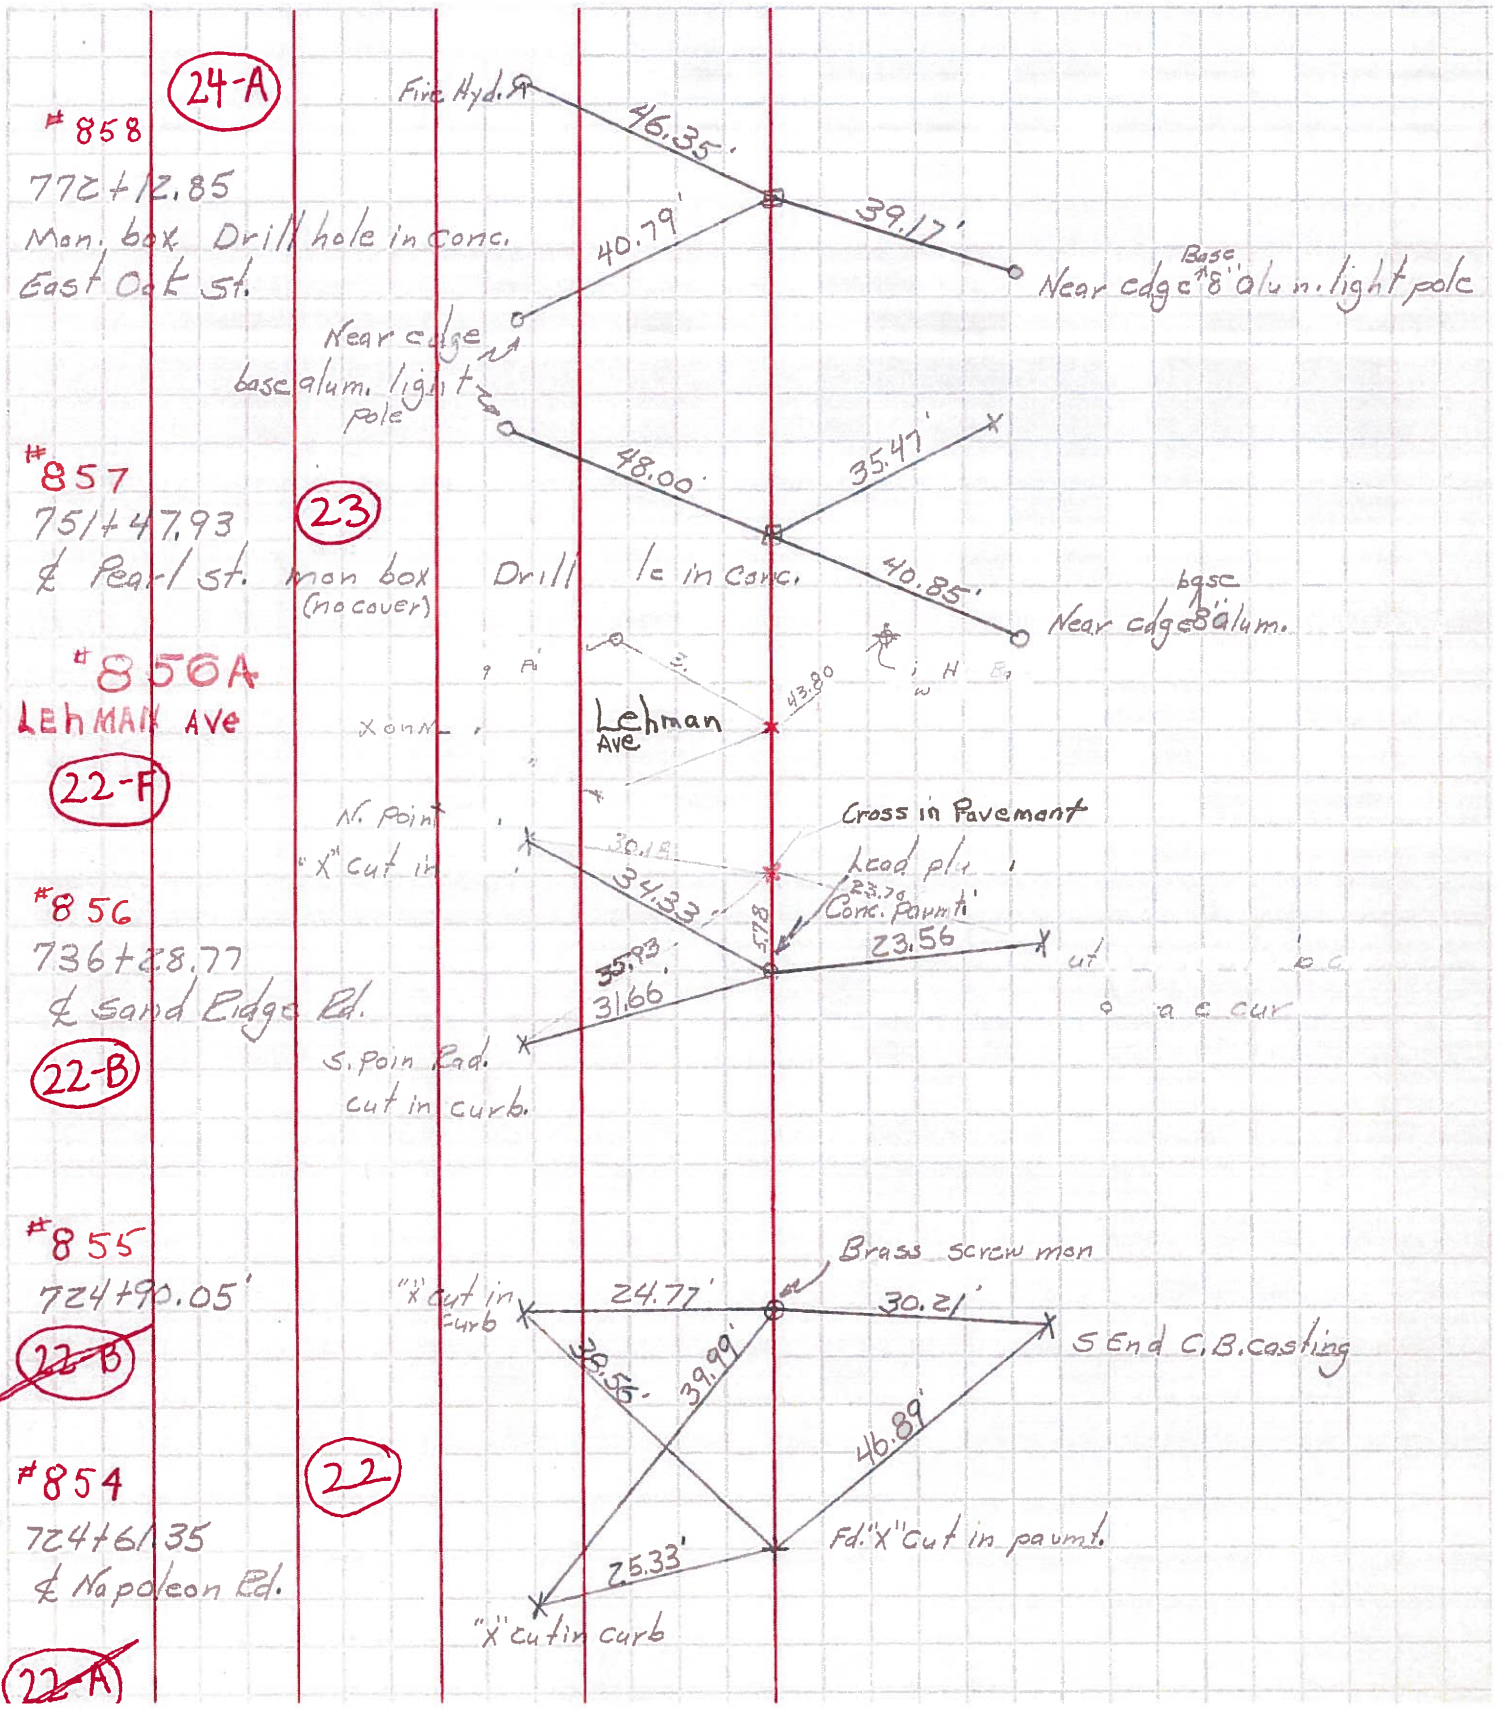 24-A
#858
772+12.85
Mon. box Drill hole in conc.
East Oak st.
Fire Hyd.
46.35'
40.79'
39.17'
Base
Near edge 8" alum. light pole
Near edge
base alum. light
pole
#857
751+47.93
23
℄ Pearl st. mon box Drill in conc.
(no cover)
48.00'
35.47'
40.85'
base
Near edge 8" alum.
#856A
LEhMAN AVE
22-F
Lehman
Ave
43.80
N. Point
"X" cut in
Cross in Pavement
Lead
23.76
Conc. pavmt.
#856
736+28.77
℄ Sand Ridge Rd.
22-B
34.33
5.78
23.56
35.93
31.66
S. Poin Rad.
cut in curb.
#855
724+90.05'
22-B
"X" cut in
curb
24.77'
Brass screw mon
30.21'
S End C.B. casting
38.56
39.99'
46.89'
#854
22
724+61.35
℄ Napoleon Rd.
25.33'
Fd. "X" Cut in pavmt.
"X" cut in curb
22-A